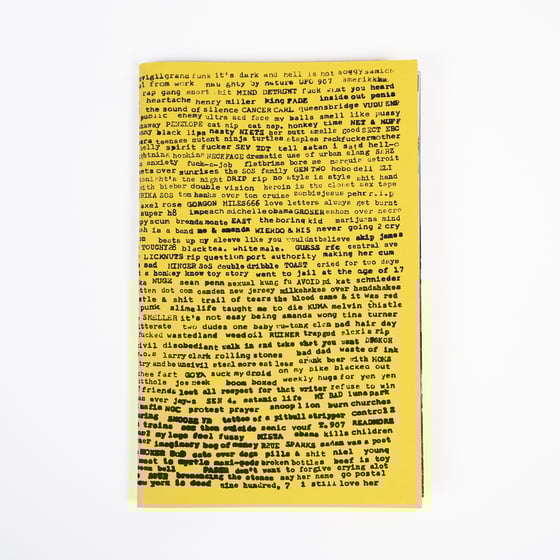 grand funk it's dark and hell is not soggy
from work naughty by nature UFO 907
rap gang snort shit MIND DETERGNT fuck what you heard
heartache henry miller king FADE inside out penis
the sound of silence CANCER CARL queensbridge VUDU
enemy ultra sad face my balls smell like pussy
PENELOPE cat nip cat nap. honkey time NET &
black lips nasty NIETS her butt smells good SECT EBC
teenage mutant ninja turtles staples rockfuckermother
spirit fucker SEV ZDT tell satan i said
honkinn NECKFACE dramatic use of urban slang
anxiety funk-n-job marquis detroit
over sunrises the SOS family GEN TWO hobo deli
the night DRIP rip no style is style shit hand
with bieber double vision heroin is the closet sex tape
SOS tom hanks over tom cruise zombiejesus
rose GORGON MILES666 love letters always get burnt
super h8 impeach michelle obama GROSER over necro
scum brenda monte EAST the boring kid marijuana mind
is a band me & amanda WIERDO & HIS never going 2 cry
beats up my sleeve like you wouldntbelieve skip james
black tea. white male. GUESS rfc central ave
LICKNUTS rip question port authority making her cum
sad MINCER SOS double dribble TOAST cried for two days
a honkey know toy story went to jail at the age of 17
NUGZ sean penn sexual kung fu AVOID pi kat schnieder
dot com camden new jersey milkshakes over handshakes
& shit trail of tears the blood came & it was red
punk slime life taught me to die KUMA melvin thistle
SMELLER it's not easy being amanda wong tina turner
two dudes one baby wu-tang clan bad hair day
wastedland weed oil RUINER trapped alexis rip
disobediant walk in and take what you want
larry clark rolling stones bad dad waste of ink
and be uncivil steal more eat less drunk beer with
fart GOYA suck my droid on my bike blacked out
joe meek boom boxed weekly hugs for yen yen
friends lost all respect for that writer refuse to win
ever jay-z SEN 4. satanic life MF BAD luna park
NGC protest prayer snoop lion burn churches
tattoo of a pitbull stripper
trains sex then suicide sonic youf READMORE
my legs feel fuzzy MISTA obama kills children
imaginary bag of money SPARKS sadam was a poet
cats over dogs pills & shit niel young
to broken bottles beef is toy
don't want to forgive crying alot
the stones say her name go postal
is dead nine hundred, 7 i still love her